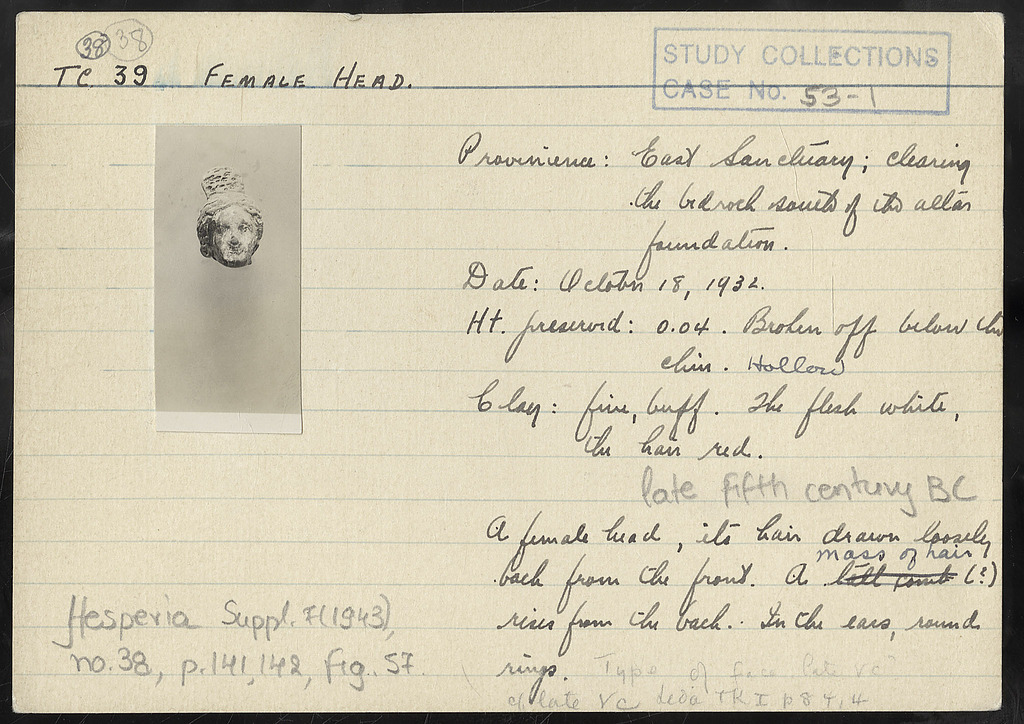 38 38
TC 39 FEMALE HEAD.
STUDY COLLECTIONS
CASE No. 53-1
Provinience: East Sanctuary; clearing
the bedrock south of the altar
foundation.
Date: October 18, 1932.
Ht. preserved: 0.04. Broken off below the
chin. Hollow
Clay: fine, buff. The flesh white,
the hair red.
late fifth century BC
A female head, its hair drawn loosely
mass of hair
back from the front. A (?)
rises from the back. In the ears, round
rings. Type of face late Vc
cf late Vc TK I p 84, 4
Hesperia Suppl. 7 (1943),
no. 38, p. 141, 142, fig. 57